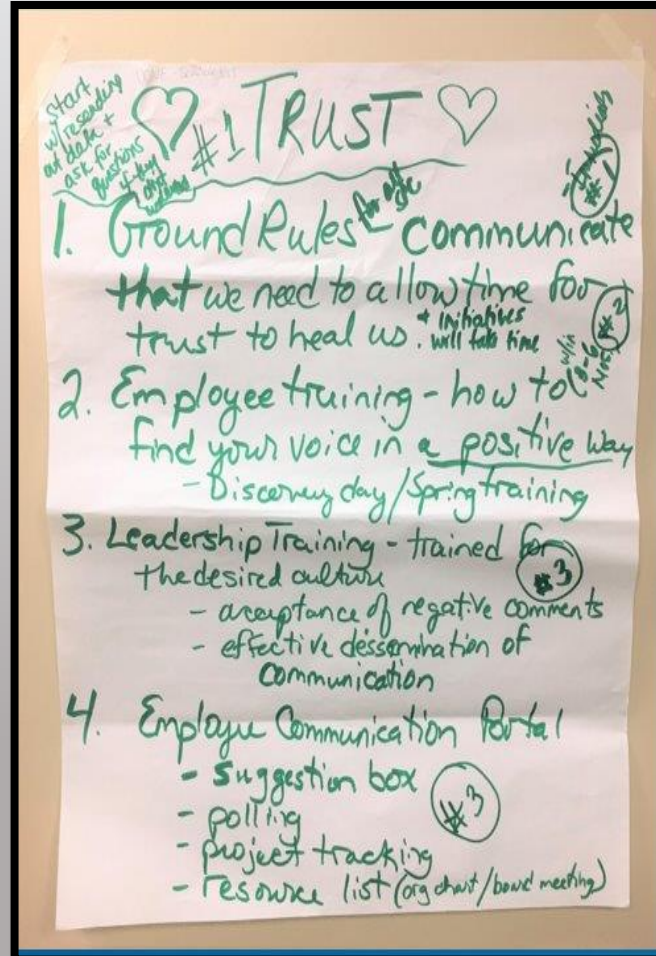 start
w/resending
out data +
ask for
questions
#1 TRUST
1. Ground Rules - communicate
for all
that we need to allow time for
trust to heal us.
+ initiatives
will take time
#1
#2
w/in
2. Employee training - how to
find your voice in a positive way
- Discovery day/Spring training
3. Leadership Training - trained for
the desired culture
#3
- acceptance of negative comments
- effective dissemination of
communication
4. Employee Communication Portal
- Suggestion box
#3
- polling
- project tracking
- resource list (org chart/board meeting)